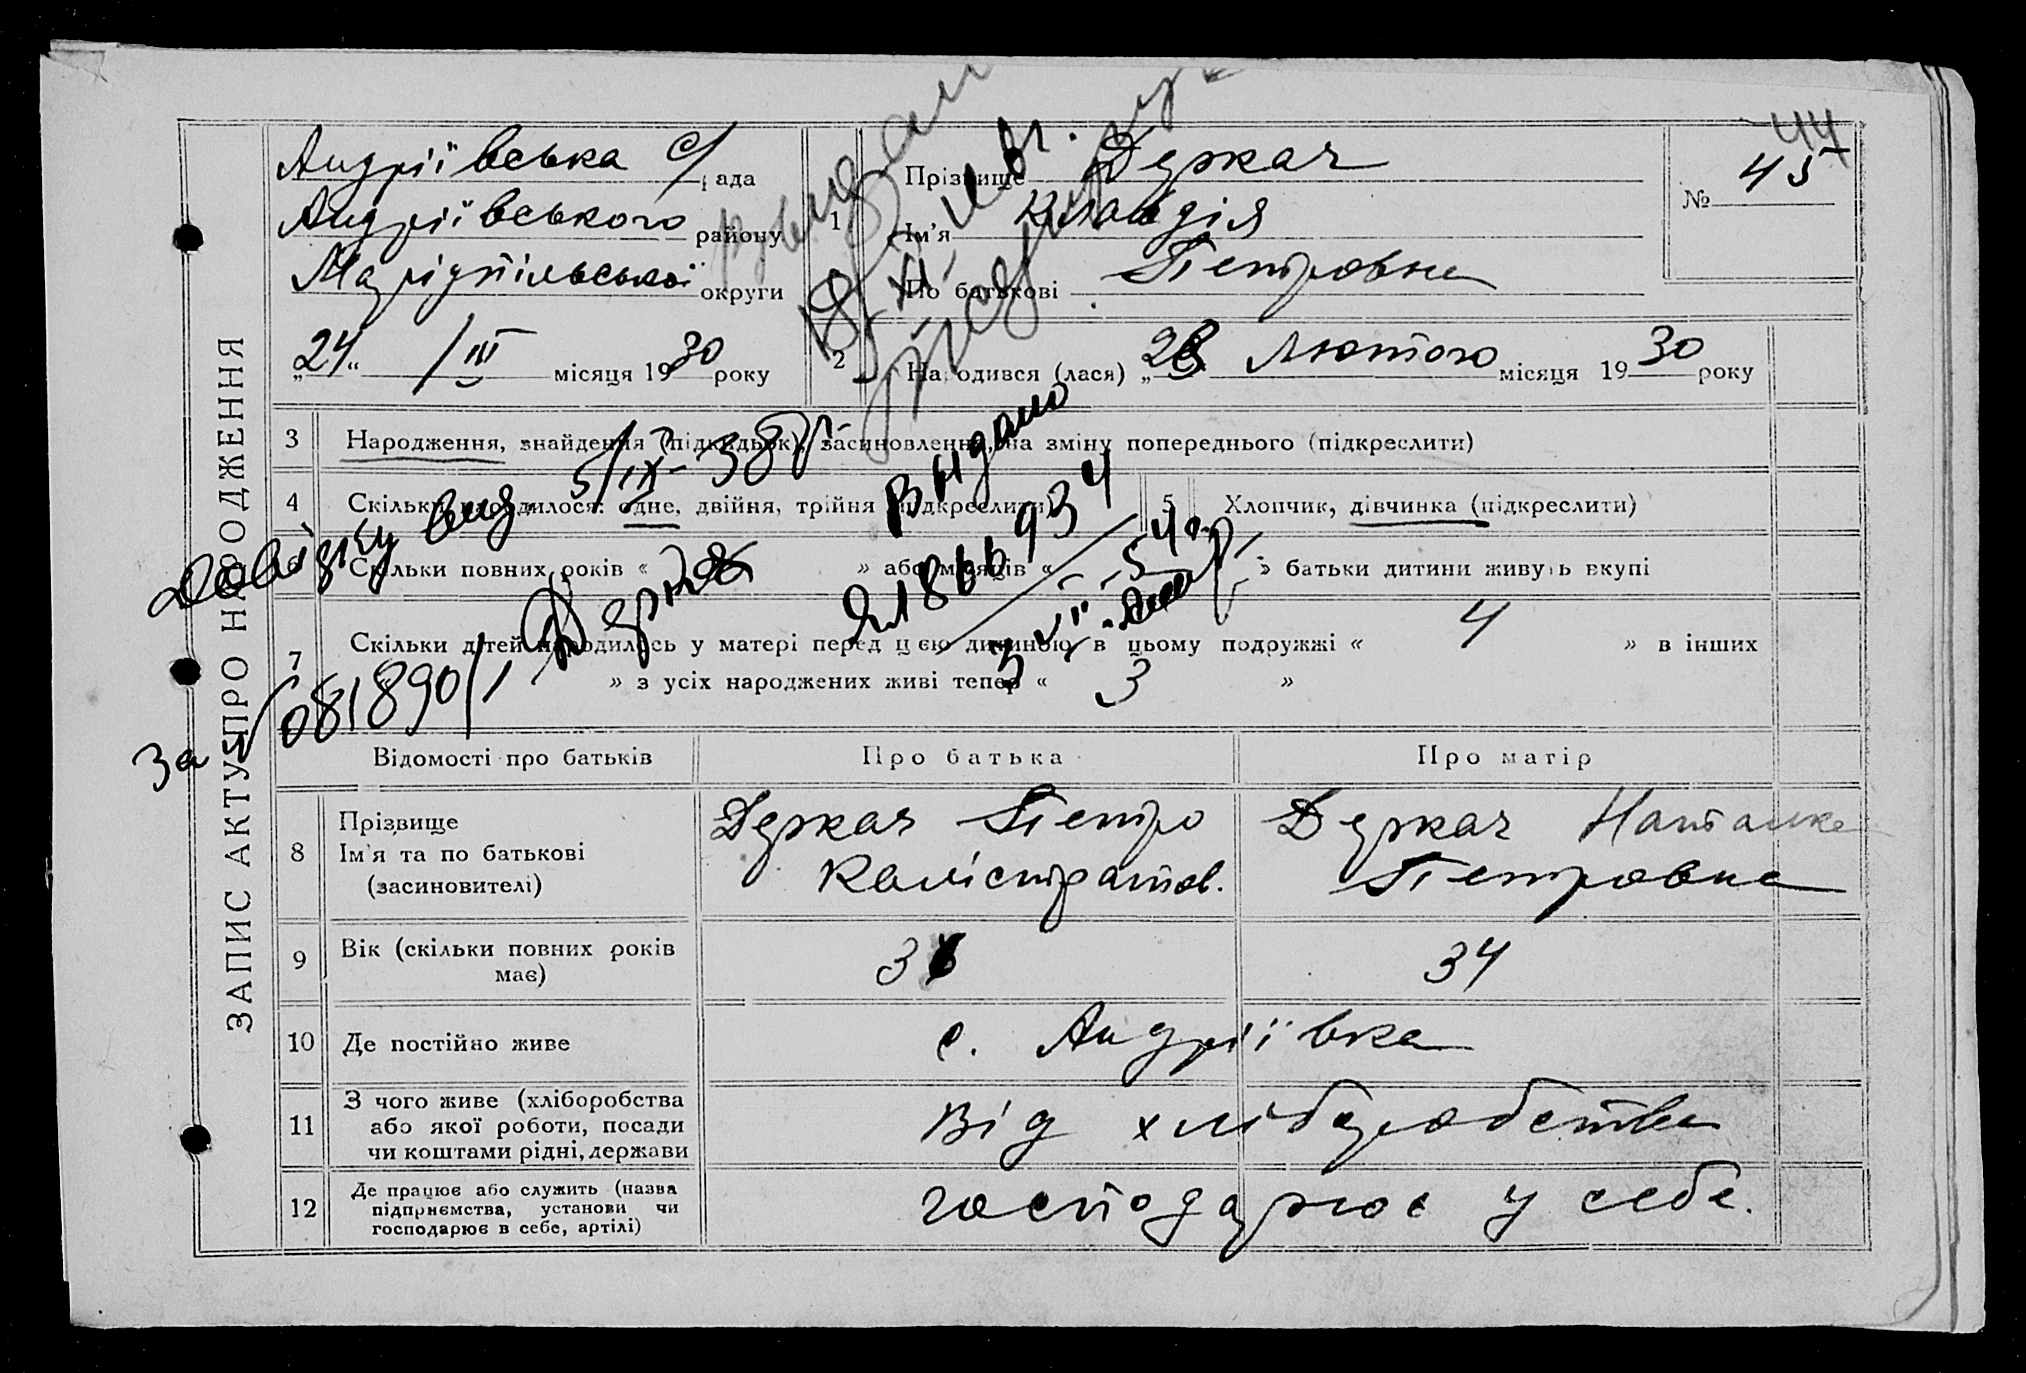 44
Андріївська с/рада
Андріївського району
Маріупільської округи
„24“ / III місяця 1930 року
1 Прізвище Деркач
Ім'я Клавдія
По батькові Петровна
№ 45
2 Народився (лася) „28 Лютого місяця 1930 року
3 Народження, знайдення (підкидьок), засиновлення, на зміну попереднього (підкреслити)
4 Скільки народилося: одне, двійня, трійня (підкреслити)
5 Хлопчик, дівчинка (підкреслити)
6 Скільки повних років « » або місяців « » батьки дитини живуть вкупі
7 Скільки дітей народилось у матері перед цією дитиною в цьому подружжі « 4 » в інших
» з усіх народжених живі тепер « 3 »
Довідку вид. 5/IX-38р.
За № 081890/1
Выдано
866934
ЗАПИС АКТУ ПРО НАРОДЖЕННЯ
Відомості про батьків Про батька Про матір
8 Прізвище
Ім'я та по батькові
(засиновителі)
Деркач Петро
Калістратов.
Деркач Наталка
Петровна
9 Вік (скільки повних років
має)
34
10 Де постійно живе с. Андріївка
11 З чого живе (хліборобства
або якої роботи, посади
чи коштами рідні, держави
Від хліборобства
12 Де працює або служить (назва
підприємства, установи чи
господарює в себе, артілі)
господарює у себе.